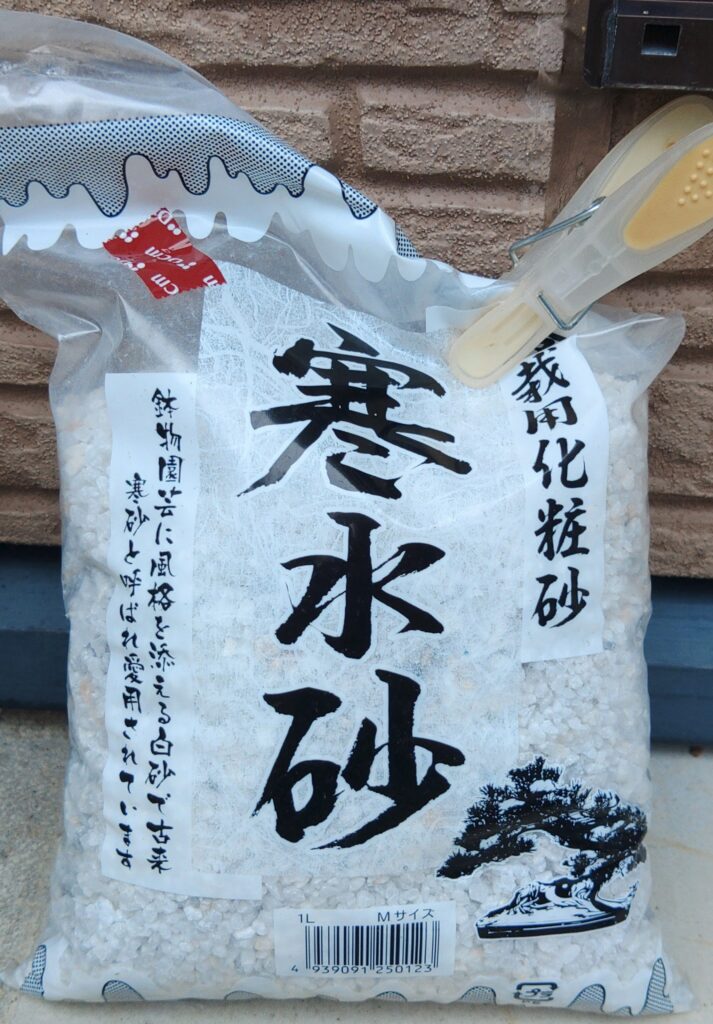 栽用化粧砂
寒水砂
鉢物園芸に風格を添える白砂で古来
寒砂と呼ばれ愛用されています
1L Mサイズ
4 939091 250123